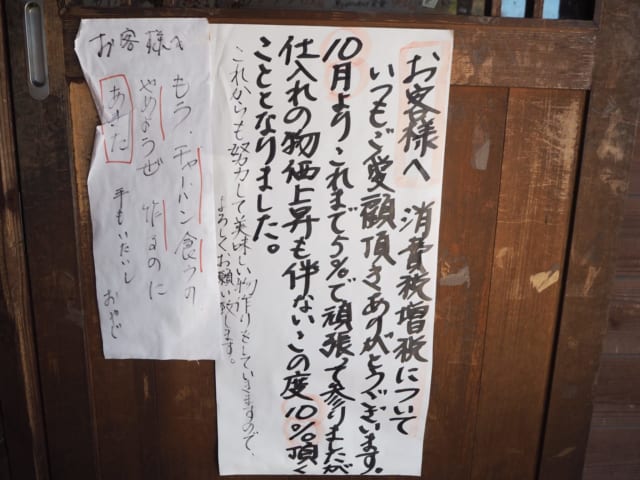 お客様へ 消費税増税について
いつもご愛顧頂きありがとうございます。
10月よりこれまで5%で頑張って参りましたが
仕入れの物価上昇も伴ない、この度10%頂く
こととなりました。
これからも努力して美味しい物作りをしていきますので、
よろしくお願い致します。
お客様へ
もう、チャーハン食うの
やめようぜ 作るのに
あきた
手もいたいし
おやじ